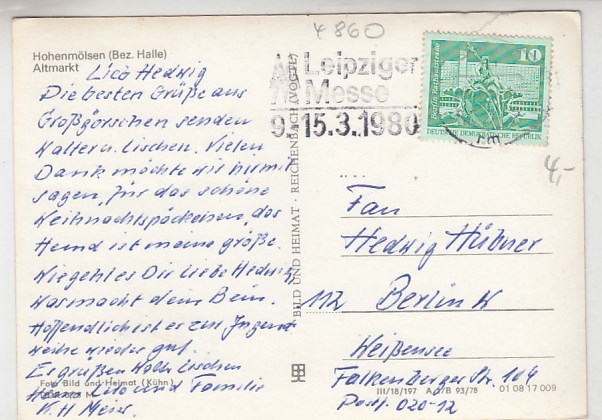 4860
Hohenmölsen (Bez. Halle)
Altmarkt
Leipziger
Messe
9.-15.3.1980
10
DEUTSCHE DEMOKRATISCHE REPUBLIK
4,-
Hedwig
Die besten Grüße aus
Großgörschen senden
Walter u. Lischen. Vielen
Dank möchte wir hirmit
sagen, für das schöne
das
Hemd ist meine größe.
Wie geht es Dir liebe Hedwig
was macht dein Bein.
Hoffendlich ist er zur Jugend
weihe wieder gut.
Es grüßen Walter Lischen
und Familie
BILD UND HEIMAT · REICHENBACH (VOGTL)
Hedwig Hübner
112 Berlin
Weißensee
Falkenberger Str. 164
020-12
Foto Bild und Heimat (Kühn)
III/18/197 93/78 01 08 17 009